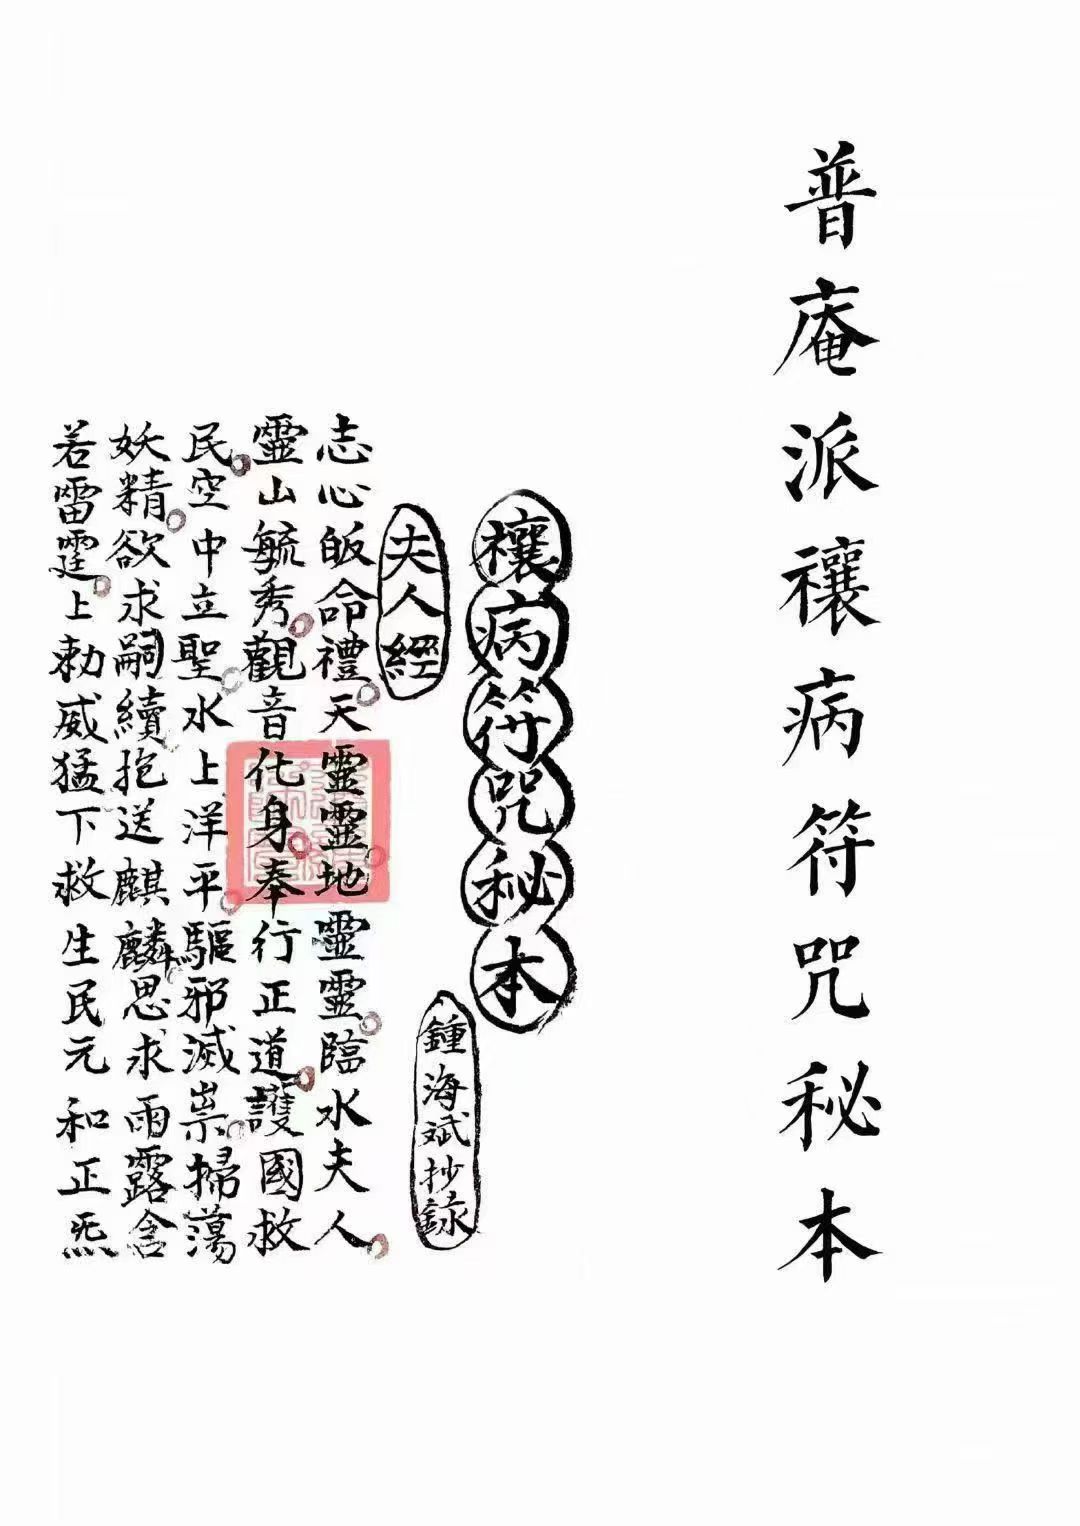 普庵派禳病符咒秘本
禳病符咒秘本
鍾海斌抄録
夫人經
志心皈命禮天靈靈地靈靈臨水夫人
靈山毓秀觀音化身奉行正道護國救
民空中立聖水上洋平驅邪滅祟掃蕩
妖精欲求嗣續抱送麒麟思求雨露含
若雷霆上勅威猛下救生民元和正炁